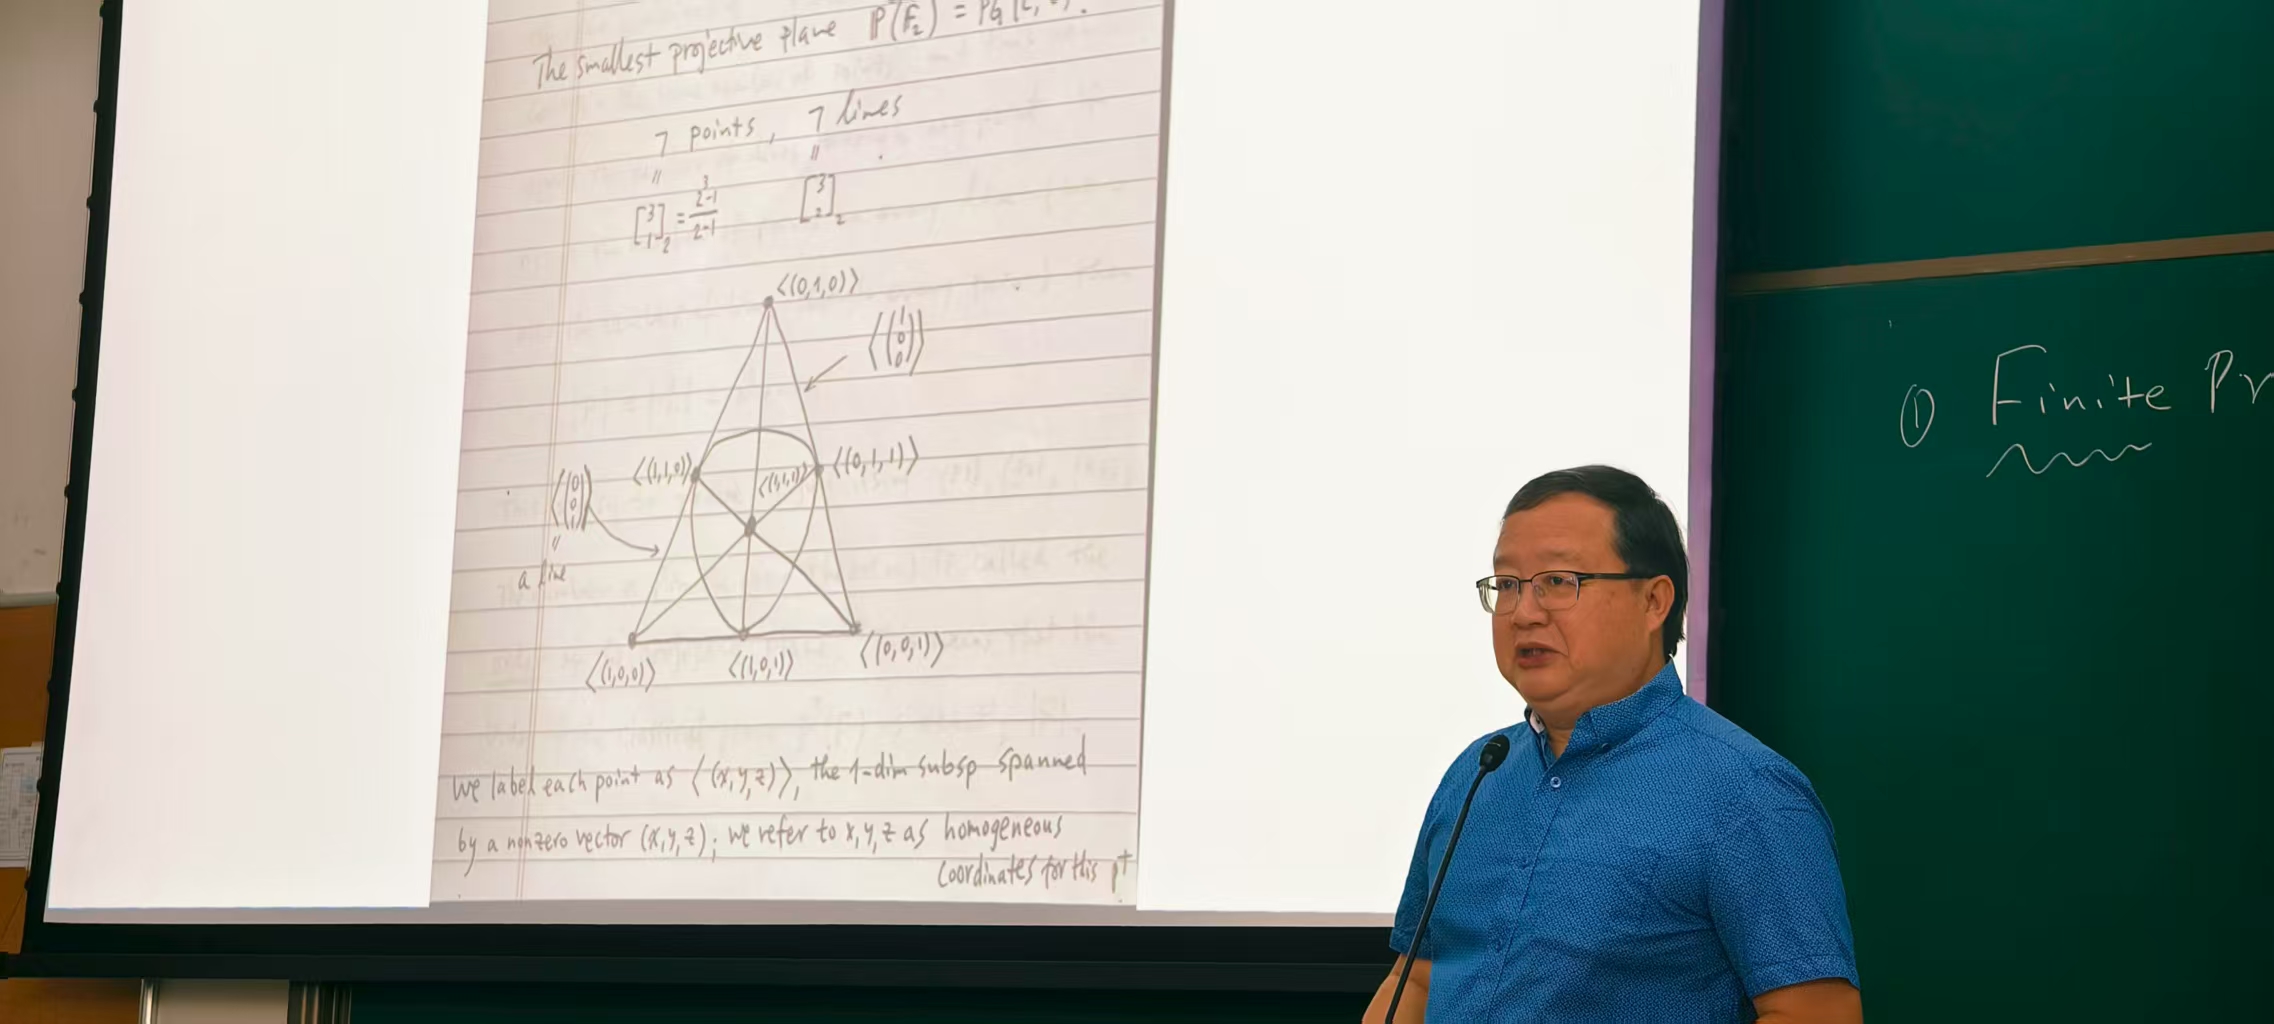 The smallest projective plane P(F₂) = PG(2,
7 points, 7 lines
" "
[3 1]₂ = 2³-1 / 2-1 [3 2]₂
⟨(0,1,0)⟩
⟨(1 0 0)⟩
⟨(1,1,0)⟩ ⟨(1,1,1)⟩ ⟨(0,1,1)⟩
⟨(0 0 1)⟩
"
a line
⟨(1,0,0)⟩ ⟨(1,0,1)⟩ ⟨(0,0,1)⟩
We label each point as ⟨(x,y,z)⟩, the 1-dim subsp spanned
by a nonzero vector (x,y,z); we refer to x,y,z as homogeneous
coordinates for this pt
① Finite Pr